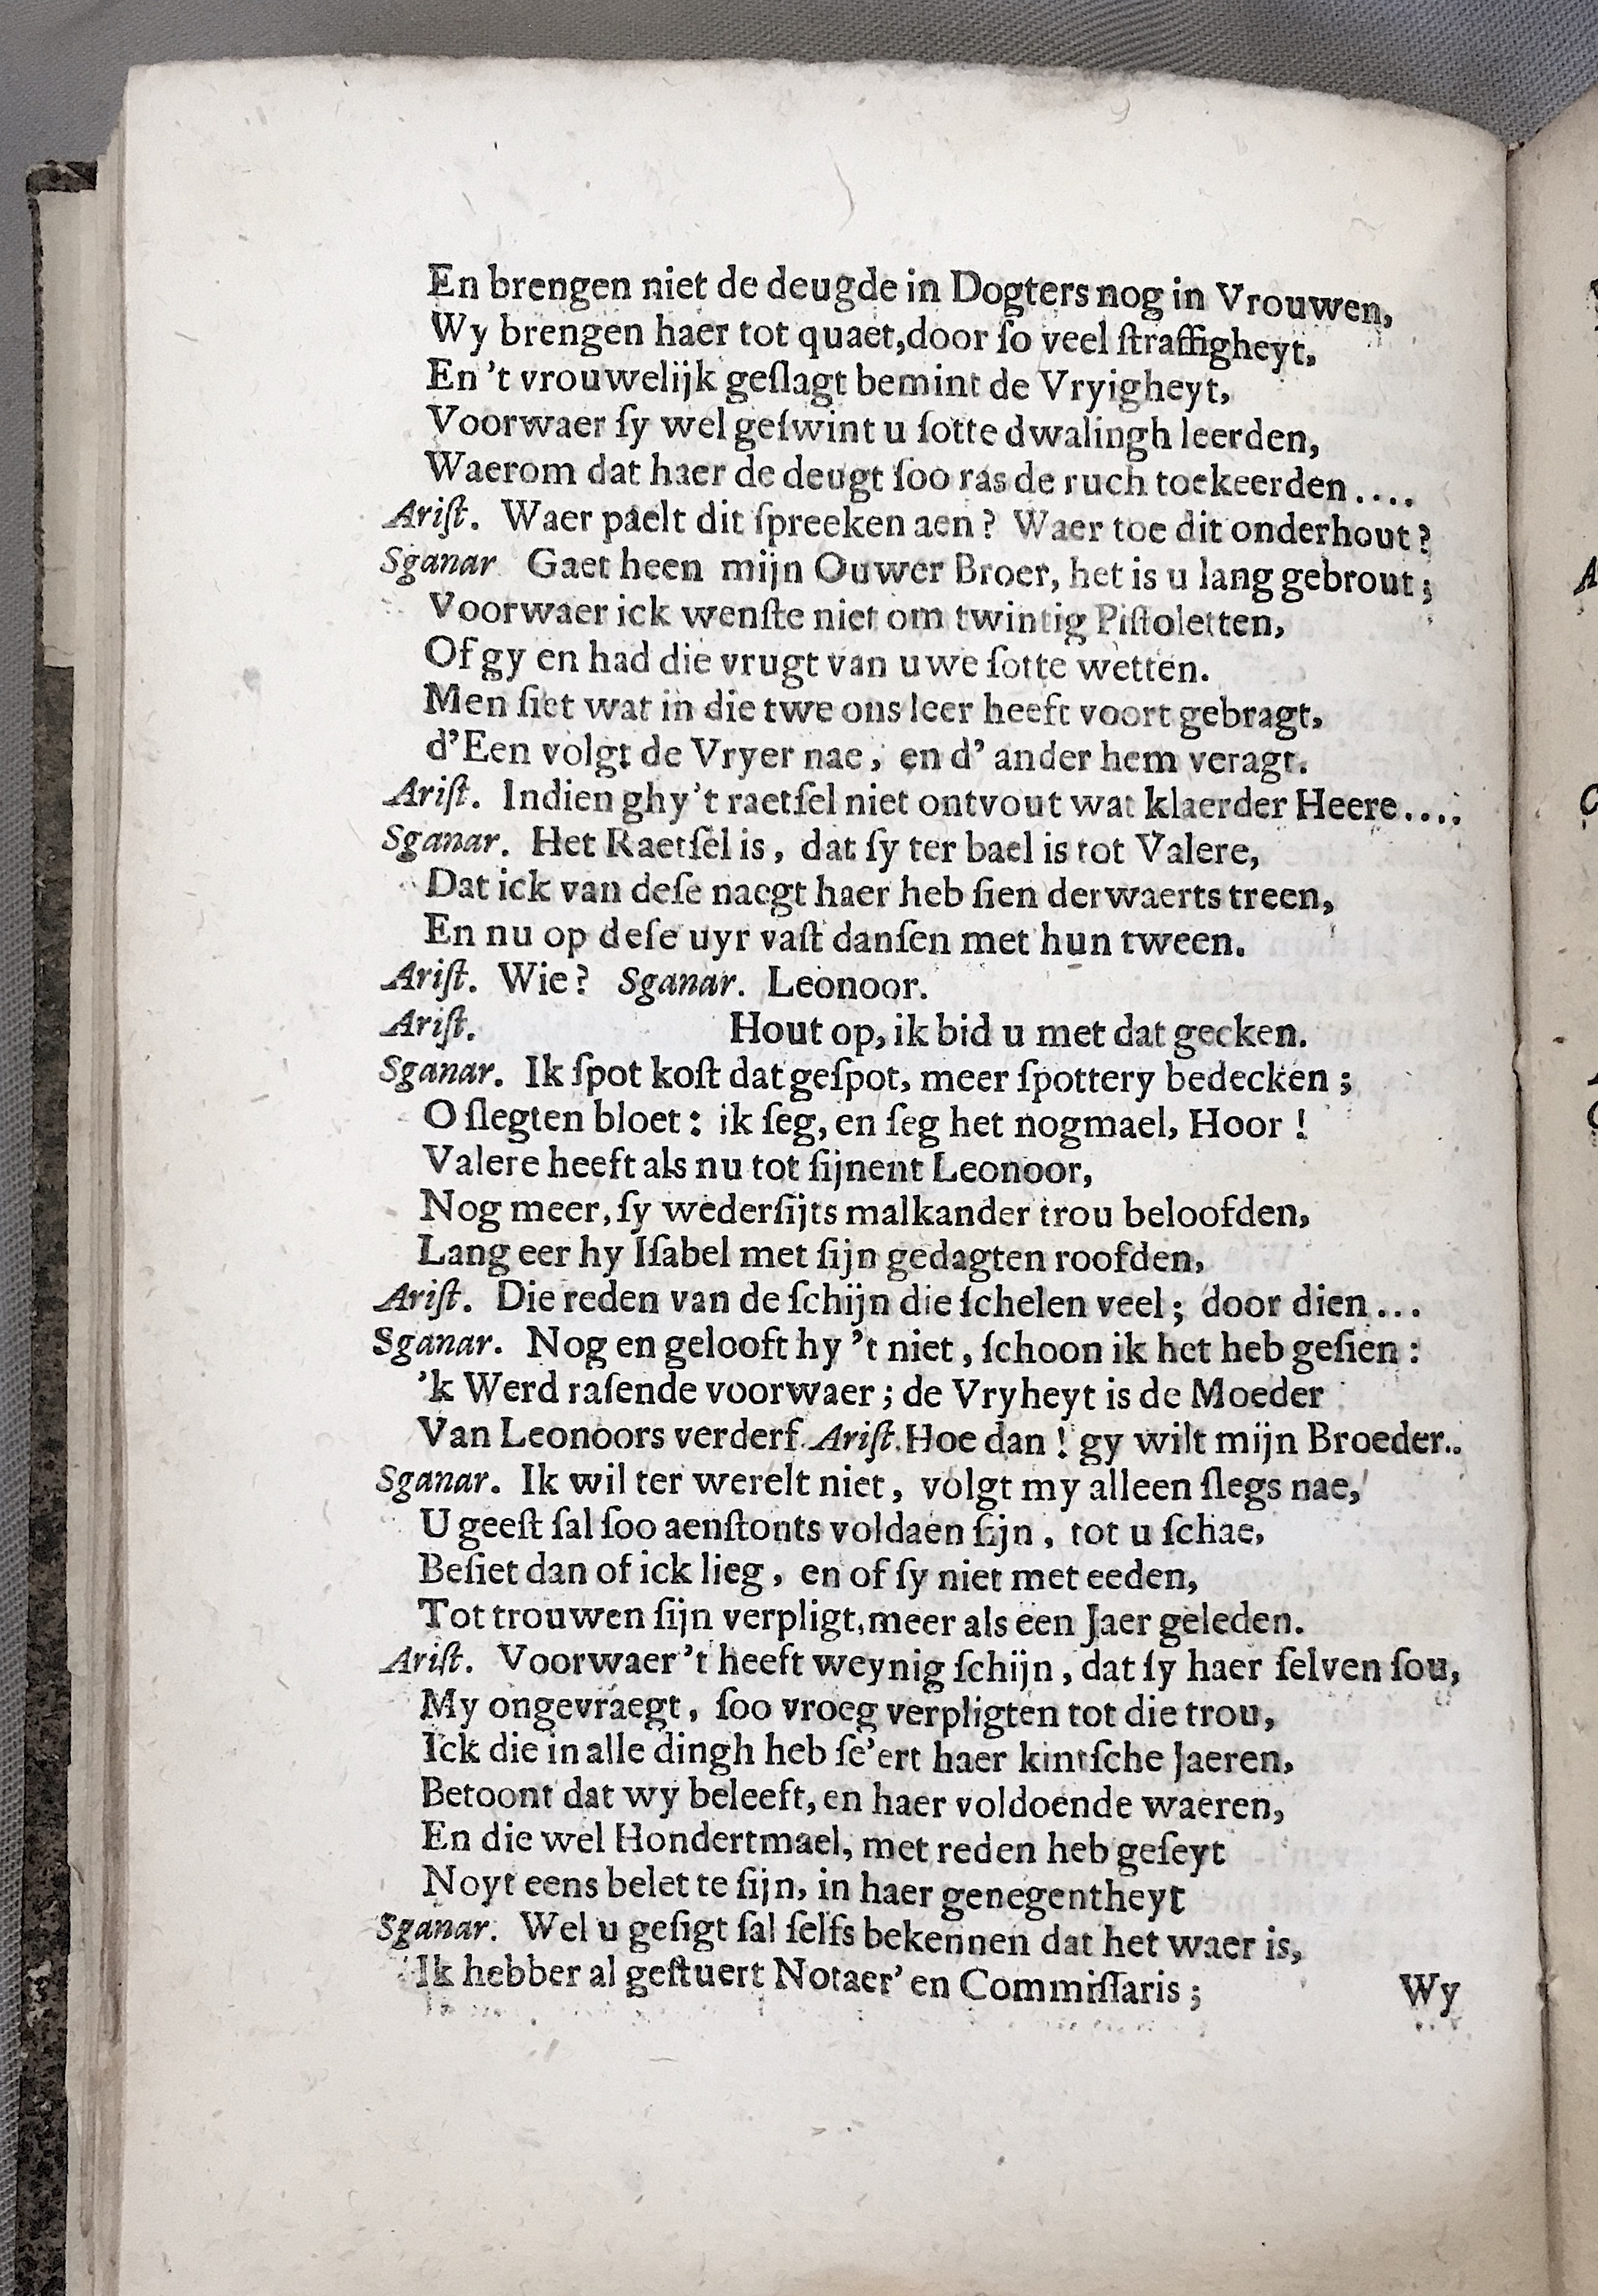 En brengen niet de deugde in Dogters nog in Vrouwen,
Wy brengen haer tot quaet, door ſo veel ſtraffigheyt,
En 't vrouwelijk geſlagt bemint de Vryigheyt,
Voorwaer ſy wel geſwint u ſotte dwalingh leerden,
Waerom dat haer de deugt ſoo ras de ruch toekeerden....
Ariſt. Waer paelt dit ſpreeken aen? Waer toe dit onderhout?
Sganar Gaet heen mijn Ouwer Broer, het is u lang gebrout;
Voorwaer ick wenſte niet om twintig Piſtoletten,
Of gy en had die vrugt van uwe ſotte wetten.
Men ſiet wat in die twe ons leer heeft voort gebragt,
d'Een volgt de Vryer nae, en d' ander hem veragt.
Ariſt. Indien ghy't raetſel niet ontvout wat klaerder Heere....
Sganar. Het Raetſel is, dat ſy ter bael is tot Valere,
Dat ick van deſe naegt haer heb ſien derwaerts treen,
En nu op deſe uyr vaſt danſen met hun tween.
Ariſt. Wie? Sganar. Leonoor.
Ariſt. Hout op, ik bid u met dat gecken.
Sganar. Ik ſpot koſt dat geſpot, meer ſpottery bedecken;
O ſlegten bloet: ik ſeg, en ſeg het nogmael, Hoor!
Valere heeft als nu tot ſijnent Leonoor,
Nog meer, ſy wederſijts malkander trou beloofden,
Lang eer hy Iſabel met ſijn gedagten roofden,
Ariſt. Die reden van de ſchijn die ſchelen veel; door dien...
Sganar. Nog en gelooft hy 't niet, ſchoon ik het heb geſien:
'k Werd raſende voorwaer; de Vryheyt is de Moeder
Van Leonoors verderf. Ariſt. Hoe dan! gy wilt mijn Broeder..
Sganar. Ik wil ter werelt niet, volgt my alleen ſlegs nae,
U geeſt ſal ſoo aenſtonts voldaen ſijn, tot u ſchae,
Beſiet dan of ick lieg, en of ſy niet met eeden,
Tot trouwen ſijn verpligt, meer als een Jaer geleden.
Ariſt. Voorwaer't heeft weynig ſchijn, dat ſy haer ſelven ſou,
My ongevraegt, ſoo vroeg verpligten tot die trou,
Ick die in alle dingh heb ſe'ert haer kintſche Jaeren,
Betoont dat wy beleeft, en haer voldoende waeren,
En die wel Hondertmael, met reden heb geſeyt
Noyt eens belet te ſijn, in haer genegentheyt
Sganar. Wel u geſigt ſal ſelfs bekennen dat het waer is,
Ik hebber al geſtuert Notaer' en Commiſſaris;
Wy